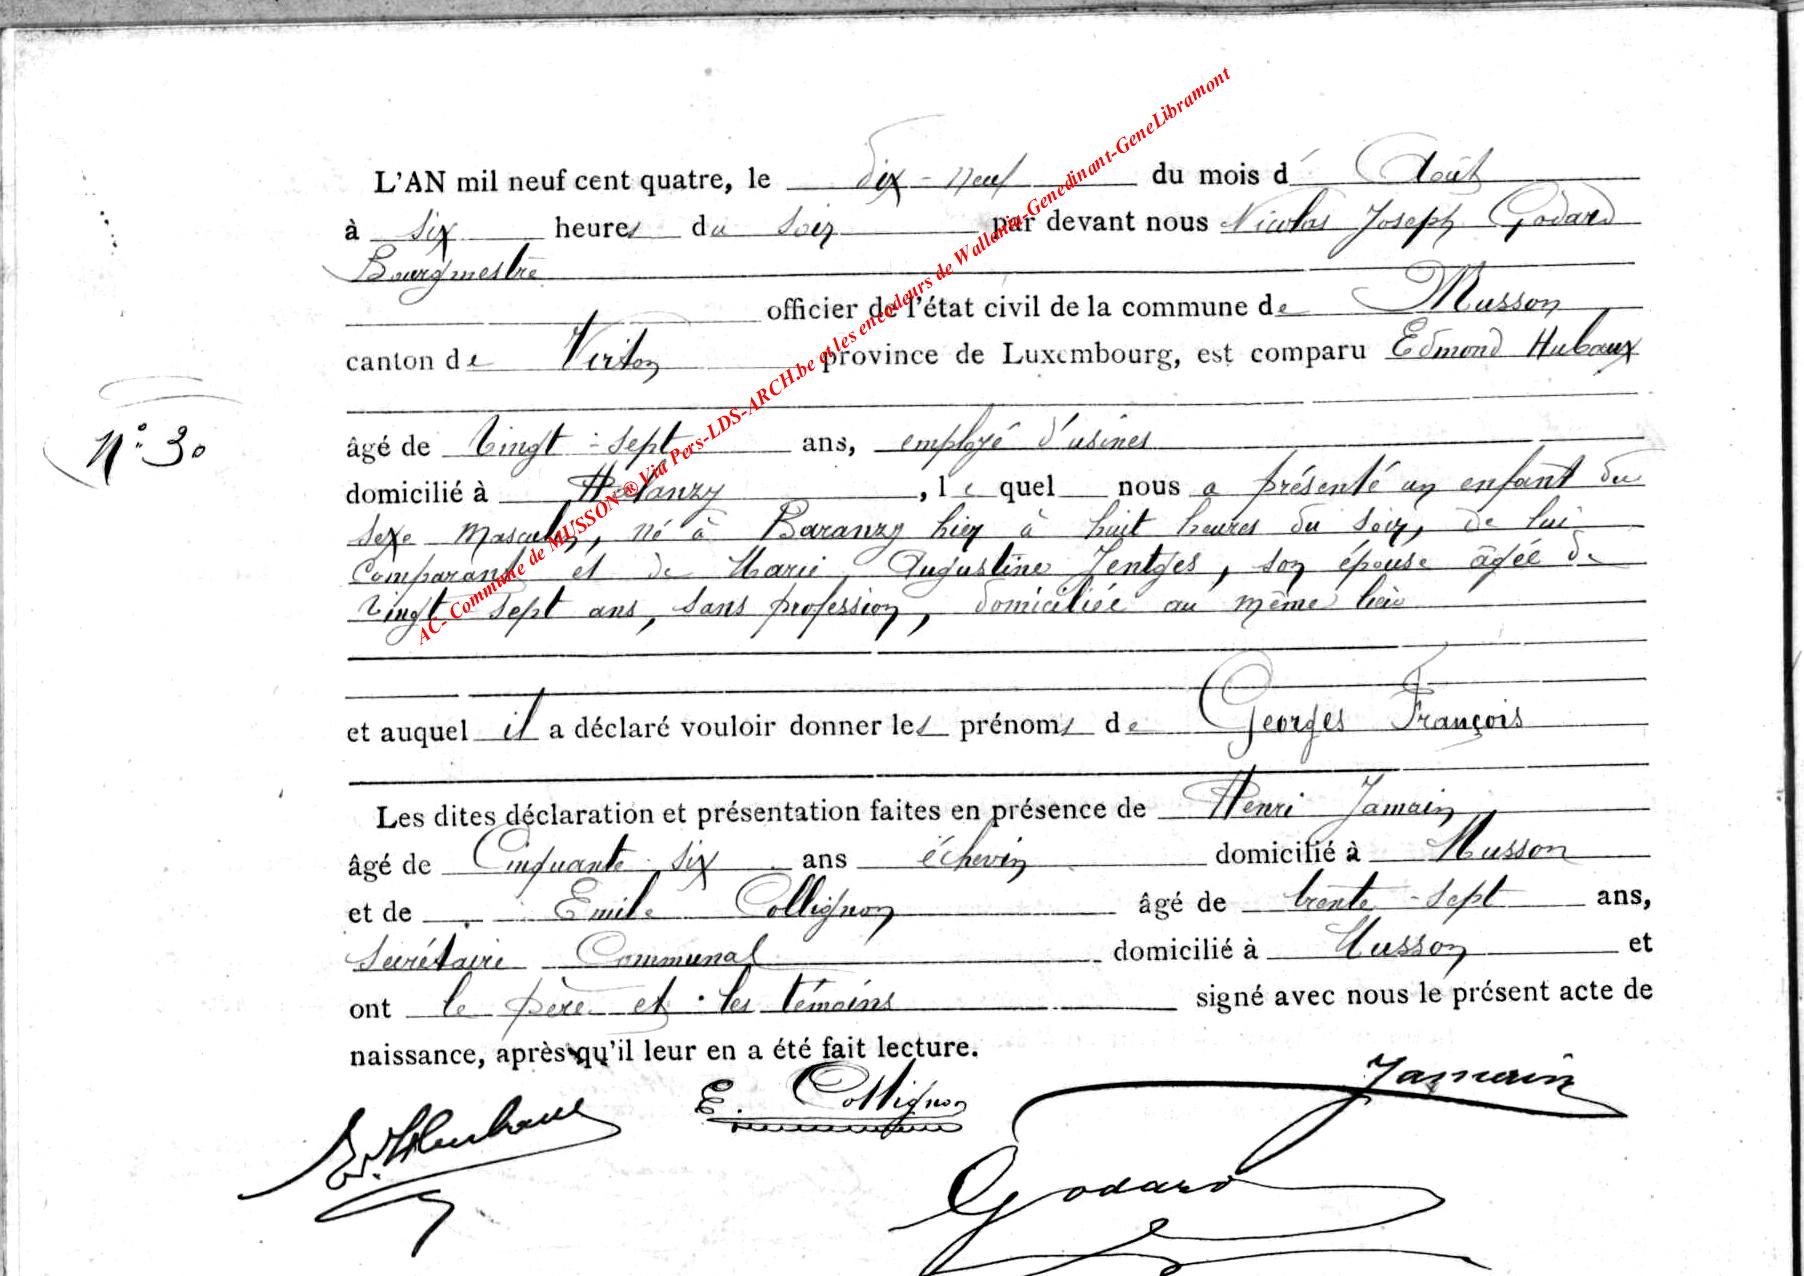 L'AN mil neuf cent quatre, le dix-neuf du mois d' Août
à six heures du soir par devant nous Nicolas Joseph Godard
Bourgmestre
officier de l'état civil de la commune de Musson
canton de Virton province de Luxembourg, est comparu Edmond Hubaux
N° 30
âgé de vingt-sept ans, employé d'usines
domicilié à Halanzy, le quel nous a présenté un enfant du
sexe masculin, né à Baranzy hier à huit heures du soir, de lui
comparant et de Marie Augustine Jentges, son épouse âgée de
vingt sept ans, sans profession, domiciliée au même lieu
et auquel il a déclaré vouloir donner les prénoms de Georges François
Les dites déclaration et présentation faites en présence de Henri Jamain
âgé de Cinquante six ans échevin domicilié à Musson
et de Emile Collignon âgé de trente-sept ans,
secrétaire Communal domicilié à Musson et
ont le père et les témoins signé avec nous le présent acte de
naissance, après qu'il leur en a été fait lecture.
Jamain
E. Collignon
Ed. Hubaux
Godard
AC- Commune de MUSSON ® Via Pers-LDS-ARCH.be et les encodeurs de Wallonia-Genedinant-GeneLibramont